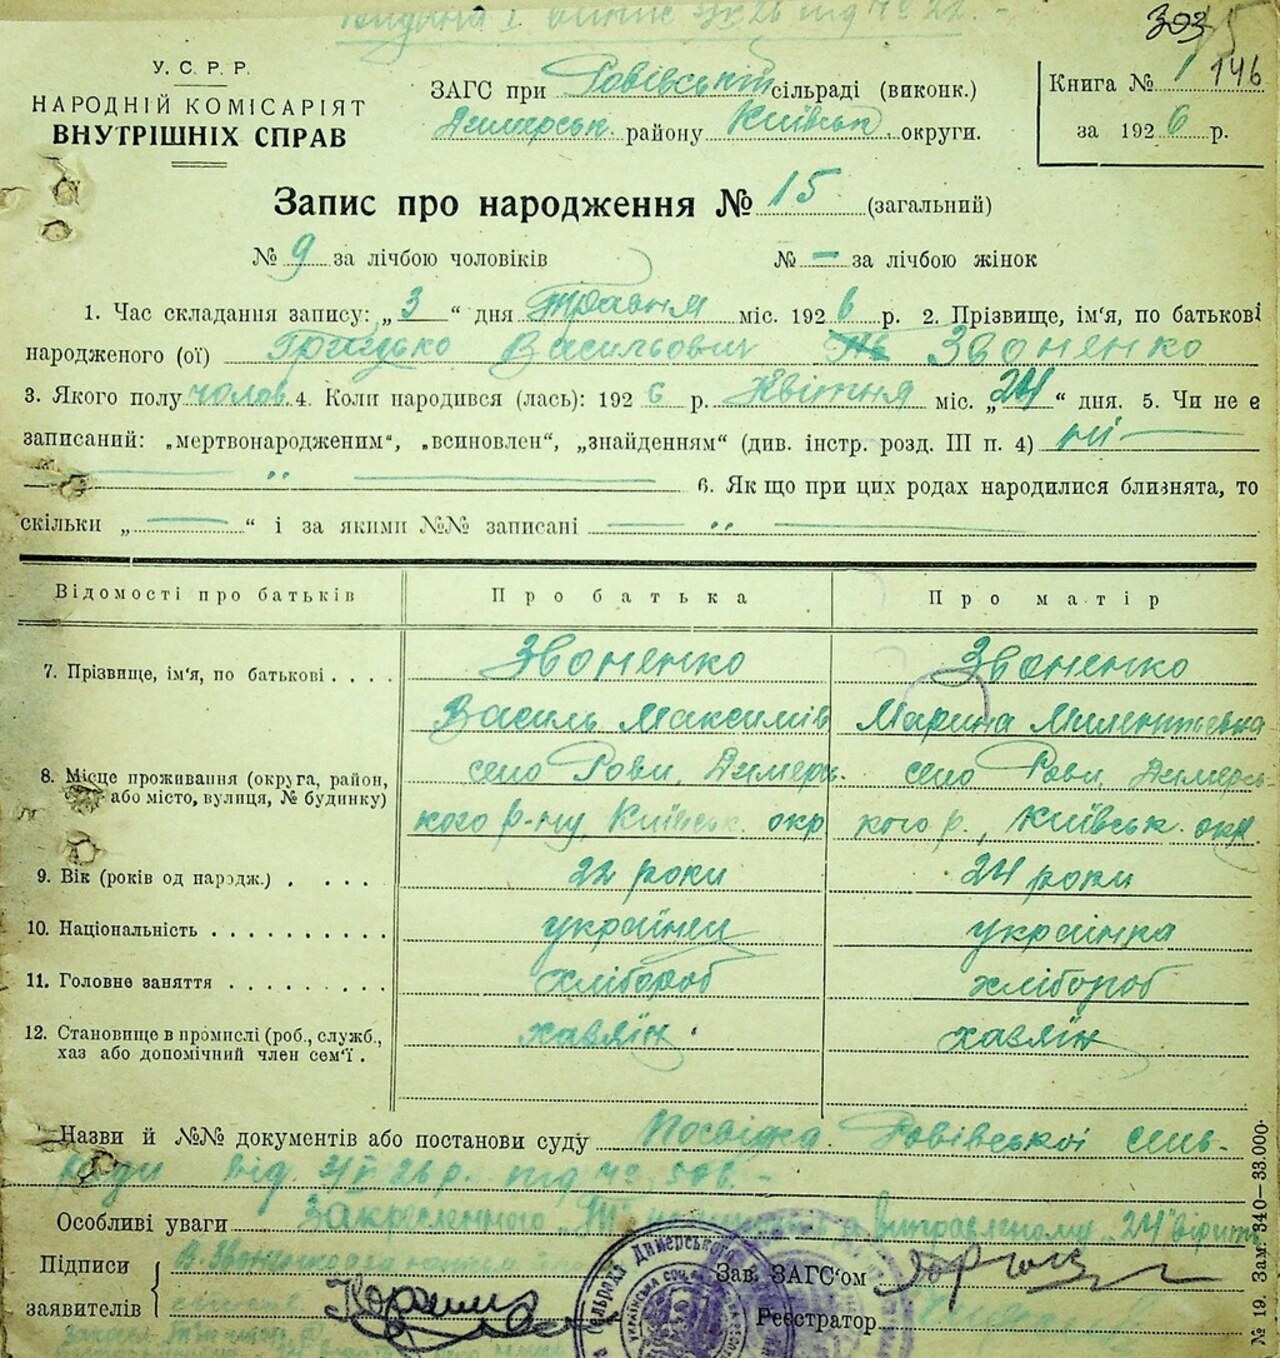 Видана 1 випис 26 під № 22. -
303
15
146
У. С. Р. Р.
НАРОДНІЙ КОМІСАРІЯТ
ВНУТРІШНІХ СПРАВ
ЗАГС при Ровівській сільраді (виконк.)
Димерськ. району Київськ. округи.
Книга № 1
за 1926 р.
Запис про народження № 15 (загальний)
№ 9 за лічбою чоловіків № — за лічбою жінок
1. Час складання запису: „3“ дня Травня міс. 1926 р. 2. Прізвище, ім'я, по батькові
народженого (ої) Грицько Васильович Звоненко
3. Якого полу чолов. 4. Коли народився (лась): 1926 р. Квітня міс. „24“ дня. 5. Чи не є
записаний: „мертвонародженим“, „всиновлен“, „знайденням“ (див. інстр. розд. III п. 4) ні —
— „ — 6. Як що при цих родах народилися близнята, то
скільки „—“ і за якими №№ записані — „ —
Відомості про батьків Про батька Про матір
7. Прізвище, ім'я, по батькові . . . . Звоненко Звоненко
Василь Максимів Марина Милентіевна
8. Місце проживання (округа, район, або місто, вулиця, № будинку) село Рови, Димерсь- село Рови, Димерсь-
кого р-ну, Київськ. окр кого р., Київськ. окр.
9. Вік (років од народж.) . . . . 22 роки 24 роки
10. Національність . . . . . . . . . . українец українка
11. Головне заняття . . . . . . . . . хлібороб хлібороб
12. Становище в промислі (роб., служб., хазяїн хазяїн
хаз або допомічний член сем'ї .
Назви й №№ документів або постанови суду Посвідка Ровівської сель-
ради від 3/V 26 р. під № 506. -
Особливі уваги Закресленного виправленому „24“ вірить
Підписи В. Звоненко
заявителів
Зав. ЗАГС'ом
Реєстратор
Димерського
№ 19. Зам. 340—33.000.